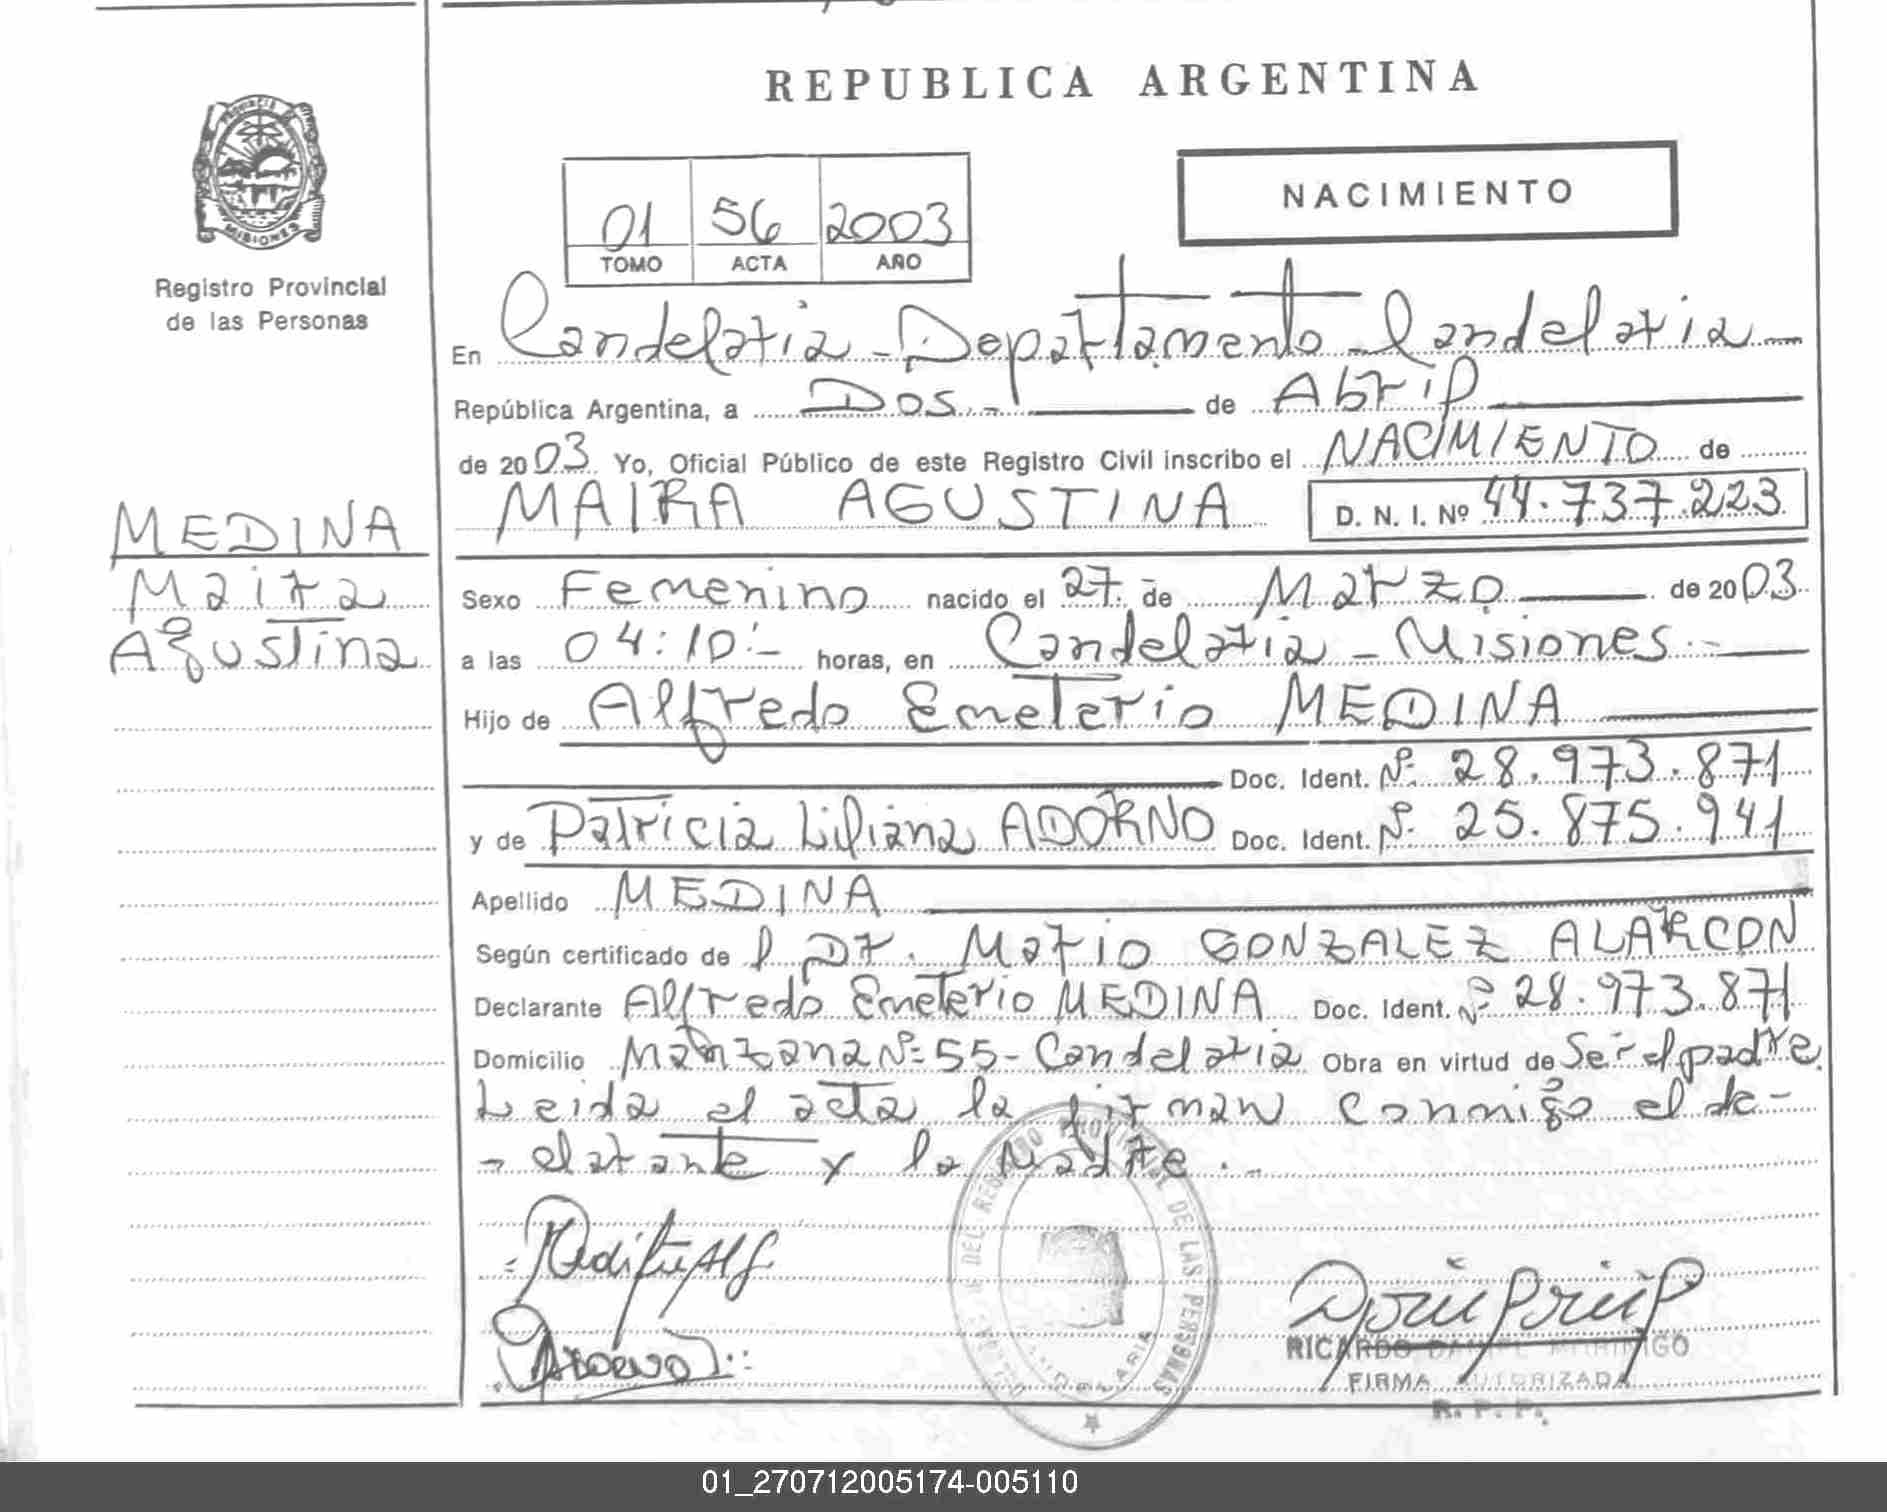 REPUBLICA ARGENTINA
PROVINCIA
MISIONES
Registro Provincial
de las Personas
NACIMIENTO
01 56 2003
TOMO ACTA AÑO
En Candelaria - Departamento Candelaria
República Argentina, a Dos.- de Abril
de 2003 Yo, Oficial Público de este Registro Civil inscribo el NACIMIENTO de
MAIRA AGUSTINA D. N. I. Nº 44.737.223
MEDINA
Maira
Agustina
Sexo Femenino nacido el 27 de Marzo de 2003
a las 04:10:- horas, en Candelaria - Misiones.-
Hijo de Alfredo Emeterio MEDINA
Doc. Ident. Nº 28.973.871
y de Patricia Liliana ADORNO Doc. Ident. Nº 25.875.941
Apellido MEDINA
Según certificado de l Dr. Mario GONZALEZ ALARCON
Declarante Alfredo Emeterio MEDINA Doc. Ident. Nº 28.973.871
Domicilio Manzana Nº 55 - Candelaria Obra en virtud de Ser el padre
Leida el acta la firman conmigo el de-
-clarante y la Madre.-
DEL REGISTRO PROVINCIAL DE LAS PERSONAS
CANDELARIA
Adorno
RICARDO DANIEL MORINIGO
FIRMA AUTORIZADA
R. P. P.
01_270712005174-005110